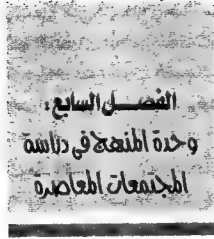 الفصل السابع :
وحدة المنهج في دراسة
المجتمعات المعاصرة